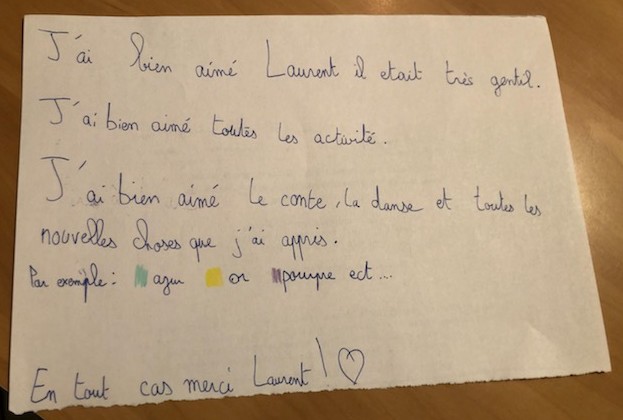 J'ai bien aimé Laurent il etait très gentil.
J'ai bien aimé toutes les activité.
J'ai bien aimé le conte, la danse et toutes les
nouvelles choses que j'ai appris.
Par exemple : azur or pourpre ect...
En tout cas merci Laurent ! ♡